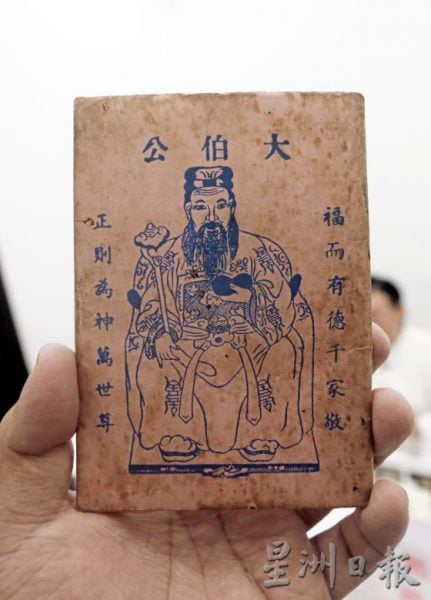 大伯公
福而有德千家敬
正則為神萬世尊
星洲日報